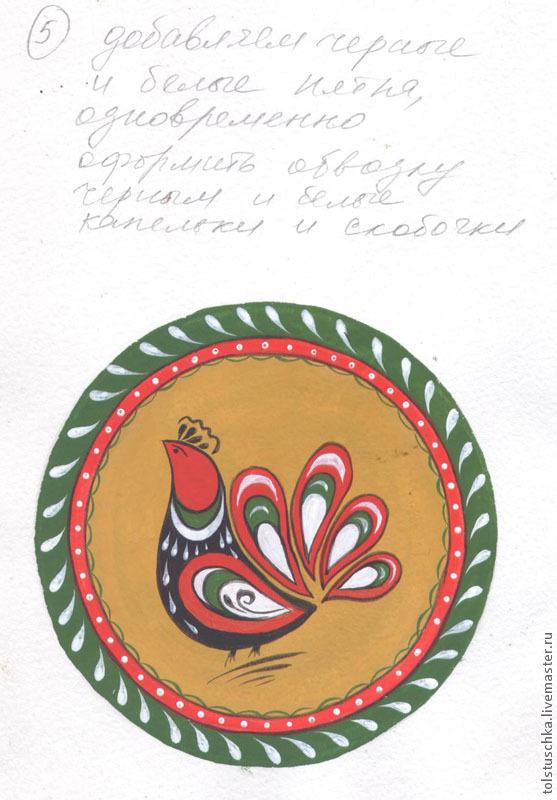 5 добавляем черные
и белые пятна,
одновременно
оформить обводку
черным и белые
капельки и скобочки
tolstuschka.livemaster.ru